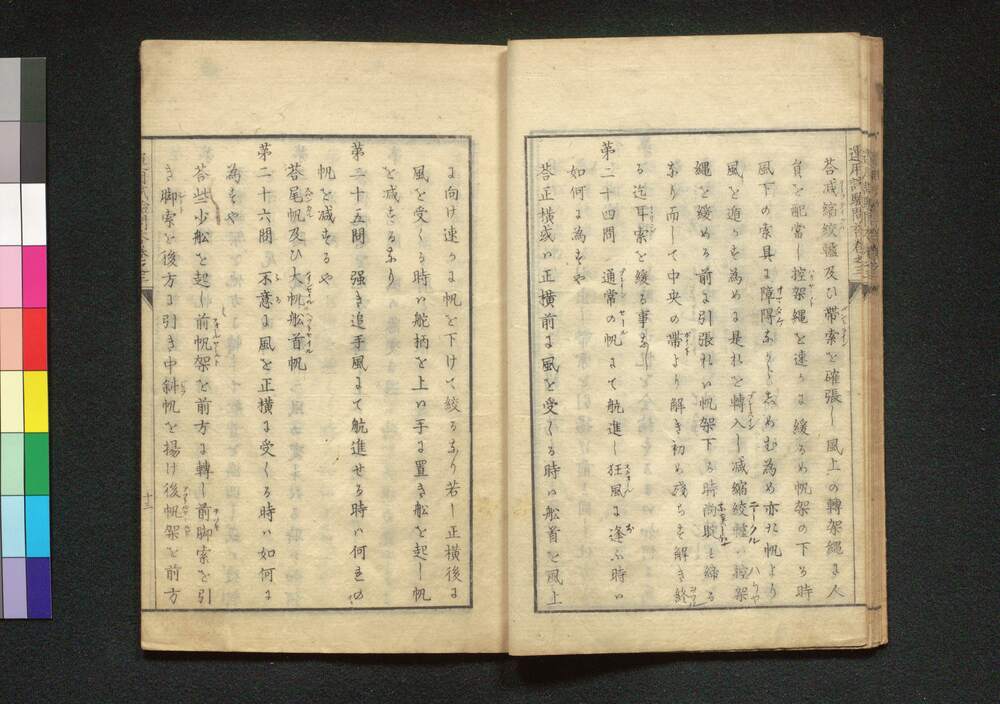 運用試驗問答卷之三
答减縮絞轤及ひ帶索を確張し風上の轉架繩に人
員を配當し控架繩を速かに緩るめ帆架の下る時
風下の索具に障碍なからしめむ為め亦た帆より
風を遁かを為めに是れを轉入し减縮絞轤い控架
繩を緩める前に引張れい帆架下る時尚敢も締る
なり而して中央の帶より解き初め殘ちを解き終
る迄耳索を緩る事なし
第二十四問 通常の帆にて航進し狂風に逢ふ時い
如何に為すや
答正橫或い正橫前に風を受くる時い舩首を風上
に向け速かに帆を下けて絞るなり若し正橫後に
風を受くる時い舵柄を上い手に置き舩を起し帆
を减するなり
第二十五問 强き追手風にて航進せる時い何れの
帆を减するや
答尾帆及ひ大帆舩首帆
第二十六問 不意に風を正橫に受くる時い如何に
為すや
答些少舩を起し前帆架を前方に轉し前脚索を引
き脚索を後方に引き中斜帆を揚け後帆架を前方
十三